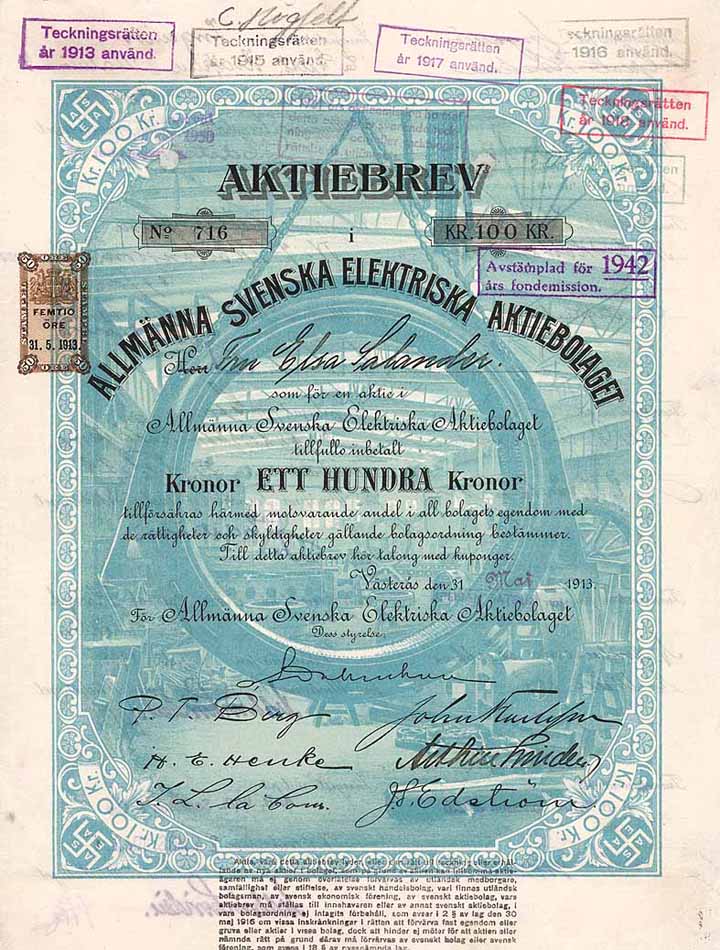 Teckningsrätten
år 1913 använd.
Teckningsrätten
år 1915 använd.
Teckningsrätten
år 1917 använd.
Teckningsrätten
år 1916 använd.
Teckningsrätten
år 1918 använd.
Kr. 100 Kr.
AKTIEBREV
No 716
i
KR. 100 KR.
Avstämplad för 1942
års fondemission.
50 ÖRE 50
FEMTIO
ÖRE
31. 5. 1913.
ALLMÄNNA SVENSKA ELEKTRISKA AKTIEBOLAGET
Herr Fru Elsa Salander.
som för en aktie i
Allmänna Svenska Elektriska Aktiebolaget
tillfullo inbetalt
Kronor ETT HUNDRA Kronor
tillförsäkras härmed motsvarande andel i all bolagets egendom med
de rättigheter och skyldigheter gällande bolagsordning bestämmer.
Till detta aktiebrev hör talong med kuponger.
Västerås den 31 Maj 1913.
För Allmänna Svenska Elektriska Aktiebolaget
Dess styrelse.
P. T. Berg
H. E. Henke
J. S. Edström.
Kr. 100 Kr.
Kr. 100 Kr.
ägaren må ej genom överlåtelse förvärvas av utländsk medborgare,
samfällighet eller stiftelse, av svenskt handelsbolag, vari finnas utländsk
bolagsman, av svensk ekonomisk förening, av svenskt aktiebolag, vars
aktiebrev må ställas till innehavaren eller av annat svenskt aktiebolag, i
vars bolagsordning ej intagits förbehåll, som avser i 2 § av lag den 30
maj 1916 om vissa inskränkningar i rätten att förvärva fast egendom eller
gruva eller aktier i vissa bolag, dock att hinder ej möter för att aktien eller
nämnda rätt på grund därav må förvärvas av svenskt bolag eller svensk